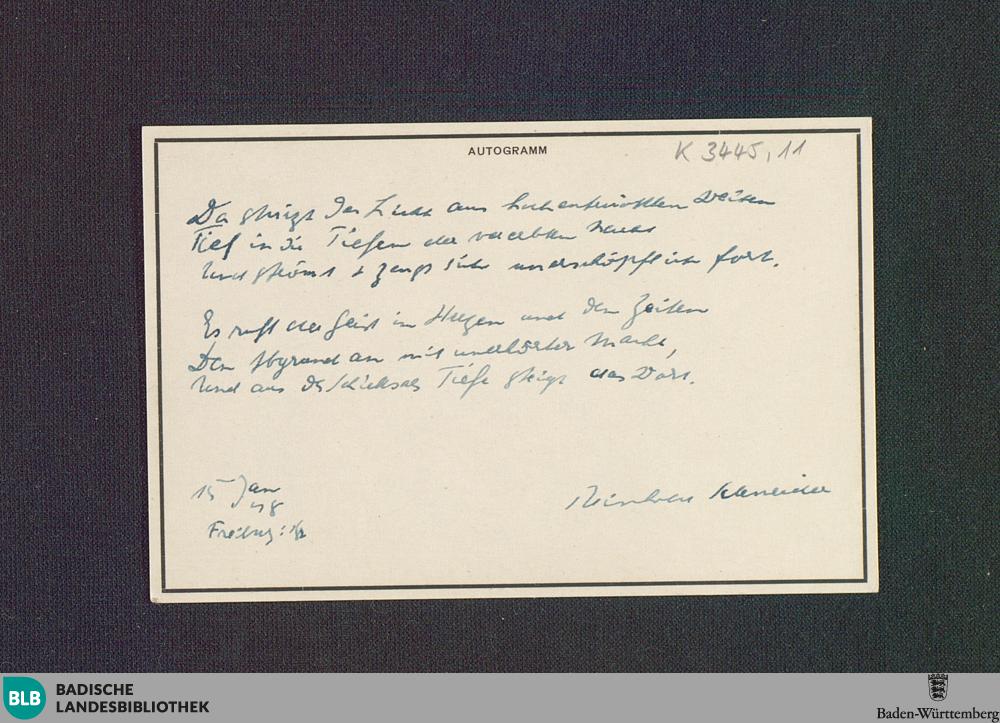 AUTOGRAMM
K 3445,11
Da steigt das Licht aus hochentrückten Weiten
Tief in die Tiefen der vererbten Nacht
Und strömt + zeugt sich unerschöpflich fort.
Es ruft der Geist im Herzen und den Zeiten
Den Abgrund an mit unerhörter Macht,
Und aus des Schicksals Tiefe steigt das Wort.
15 Jan
48
Freiburg i/B
Reinhold Schneider
BLB
BADISCHE
LANDESBIBLIOTHEK
Baden-Württemberg